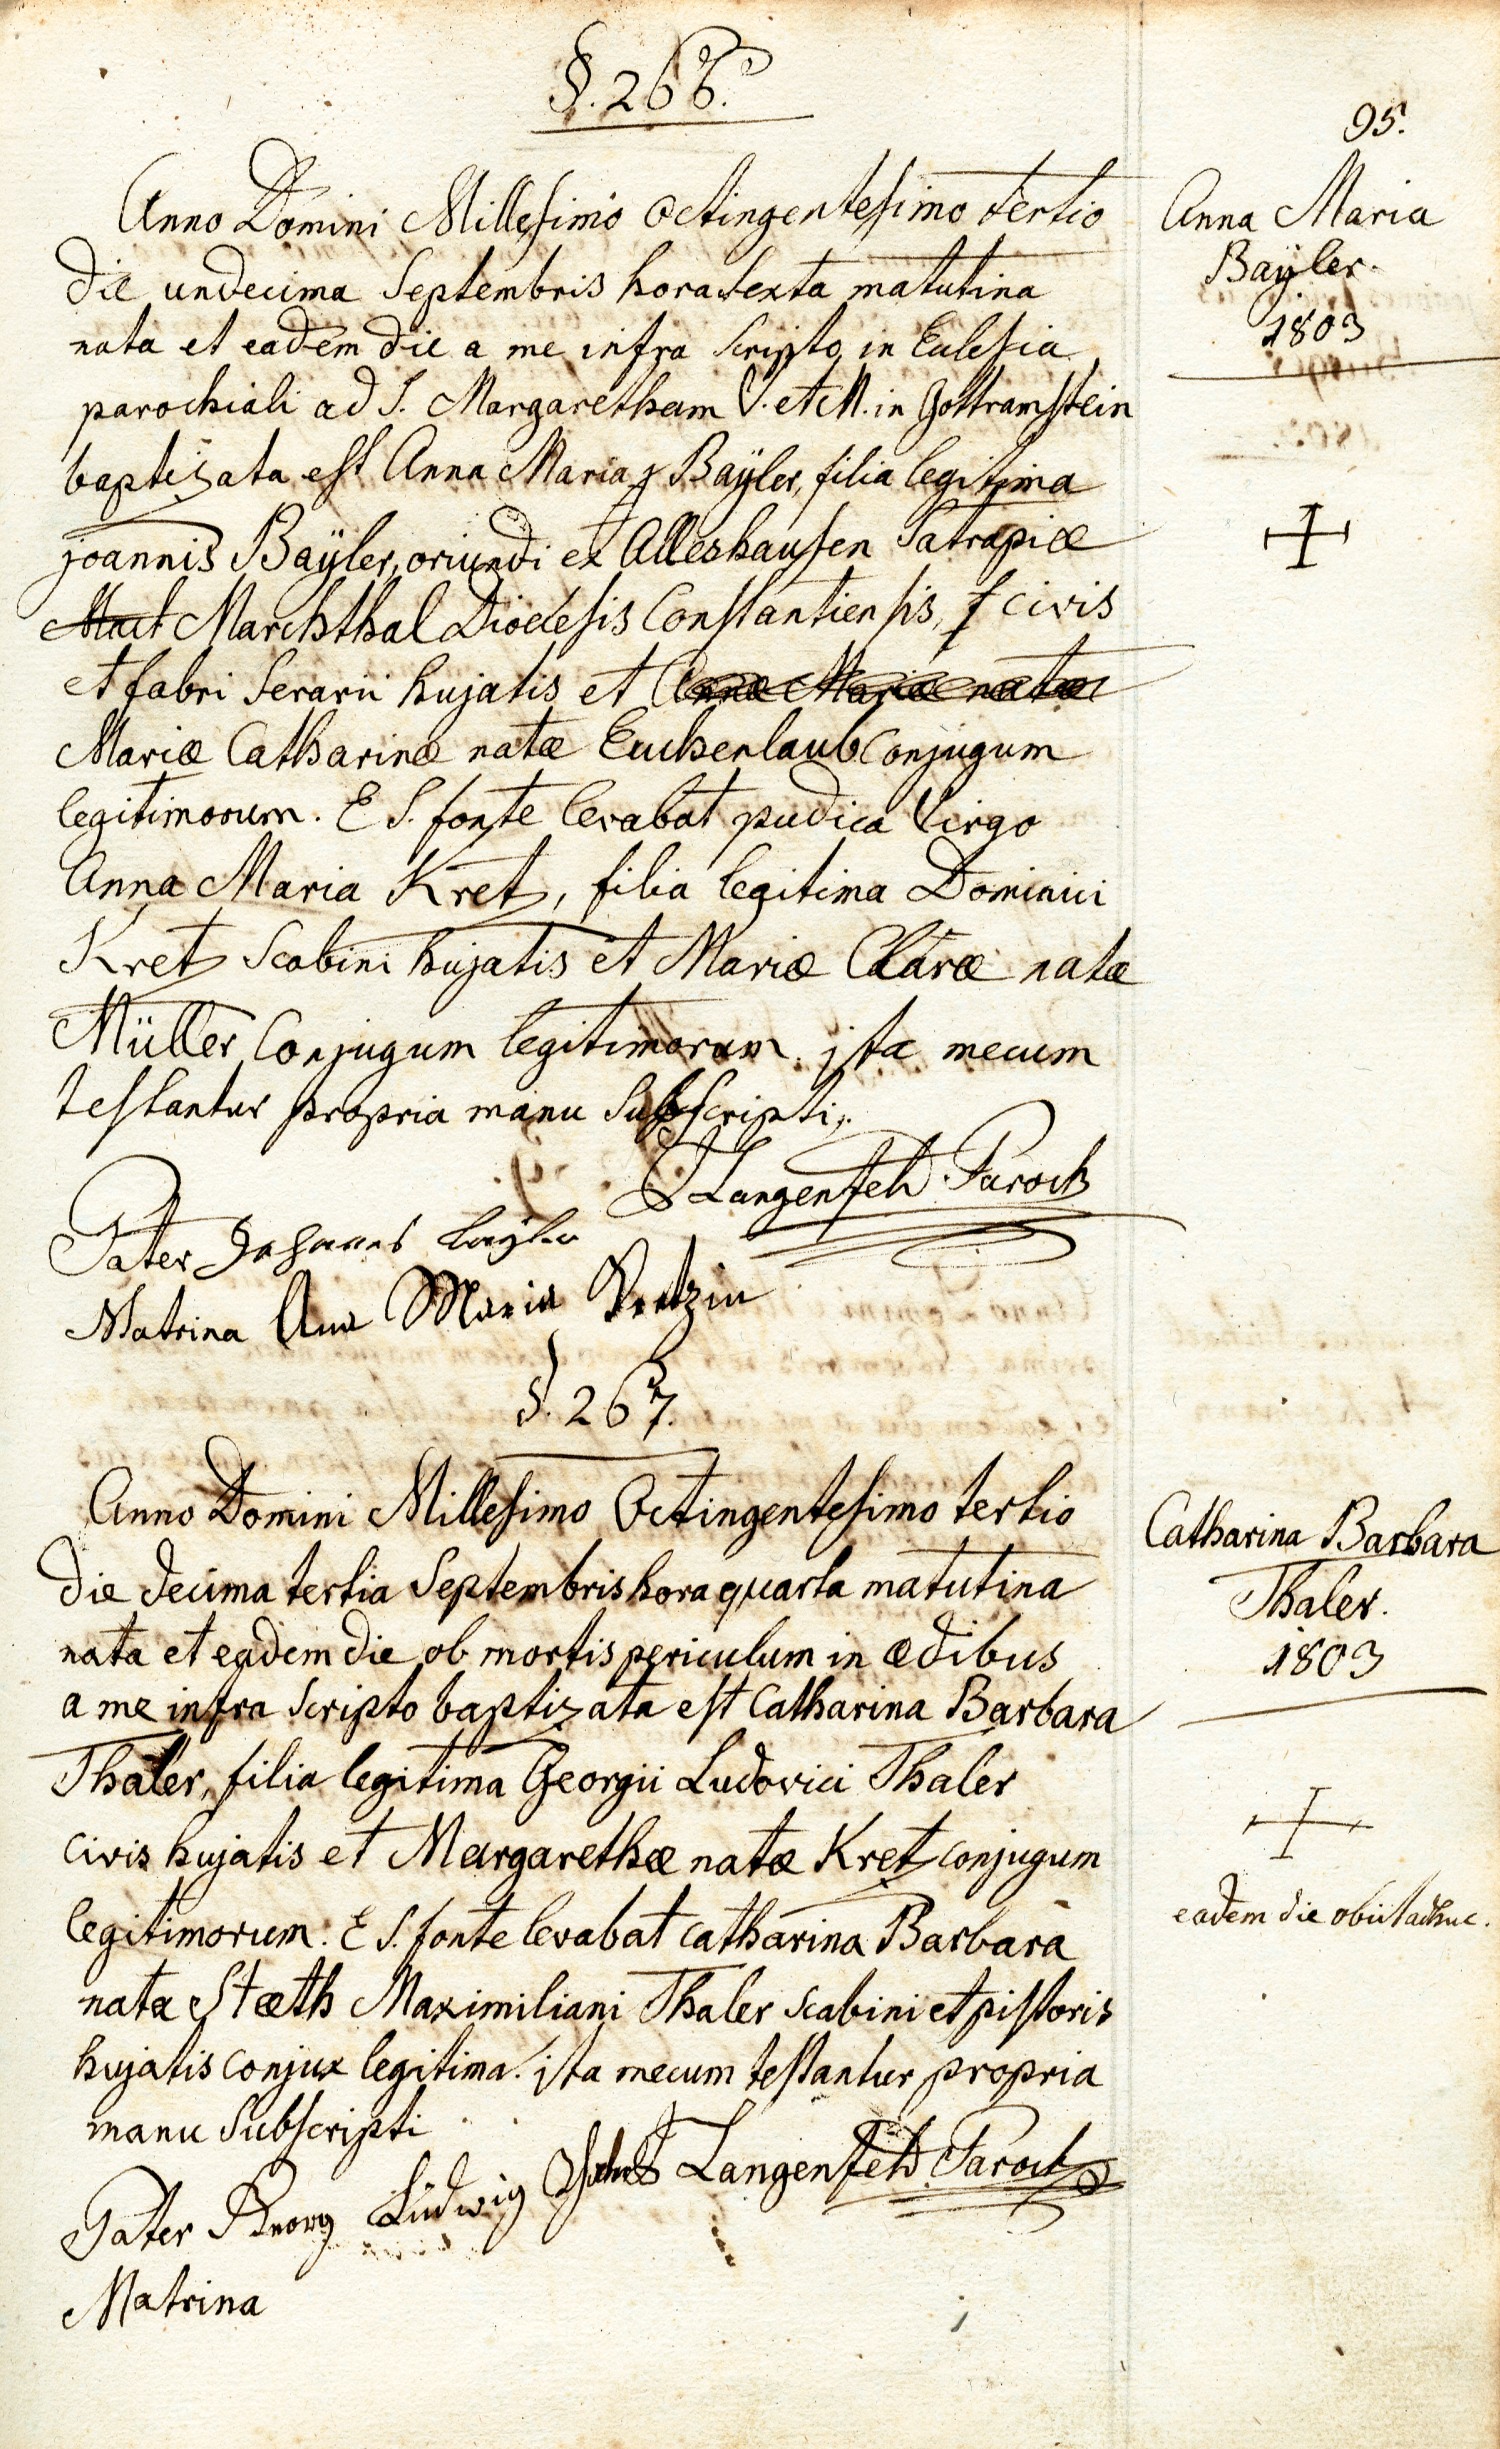 §. 266.
95.
Anno Domini Millesimo Octingentesimo tertio
die undecima Septembris hora sexta matutina
nata et eadem die a me infra scripto in Eclesia
parochiali ad S. Margaretham V. et M. in Gottramstein
baptizata est Anna Maria Baÿler, filia legitima
joannis Baÿler, oriundi ex Alleshausen Satrapiæ
Marchthal Dioecesis Constantiensis, civis
et fabri serarii hujatis et Annæ Mariæ natæ
Mariæ Catharinæ natæ Euchenlaub Conjugum
legitimorum. E S. fonte levabat pudica Virgo
Anna Maria Kretz, filia legitima Dominici
Kretz Scabini hujatis et Mariæ Claræ natæ
Müller Conjugum legitimorum. jta mecum
testantur propria manu Subscripti.
Langenfeld Paroch
Pater Johannes Baÿler
Matrina Ana Maria Kretzin
Anna Maria
Baÿler.
1803
§. 267.
Anno Domini Millesimo Octingentesimo tertio
die decima tertia Septembris hora quarta matutina
nata et eadem die ob mortis periculum in ædibus
a me infra scripto baptizata est Catharina Barbara
Thaler, filia legitima Georgii Ludovici Thaler
civis hujatis et Margarethæ natæ Kretz conjugum
legitimorum. E S. fonte levabat Catharina Barbara
nata Stæth Maximiliani Thaler scabini et pistoris
hujatis conjux legitima. jta mecum testantur propria
manu Subscripti
Langenfeld Paroch
Pater Georg Ludwig Thaler
Matrina
Catharina Barbara
Thaler.
1803
eadem die obiit adhuc.